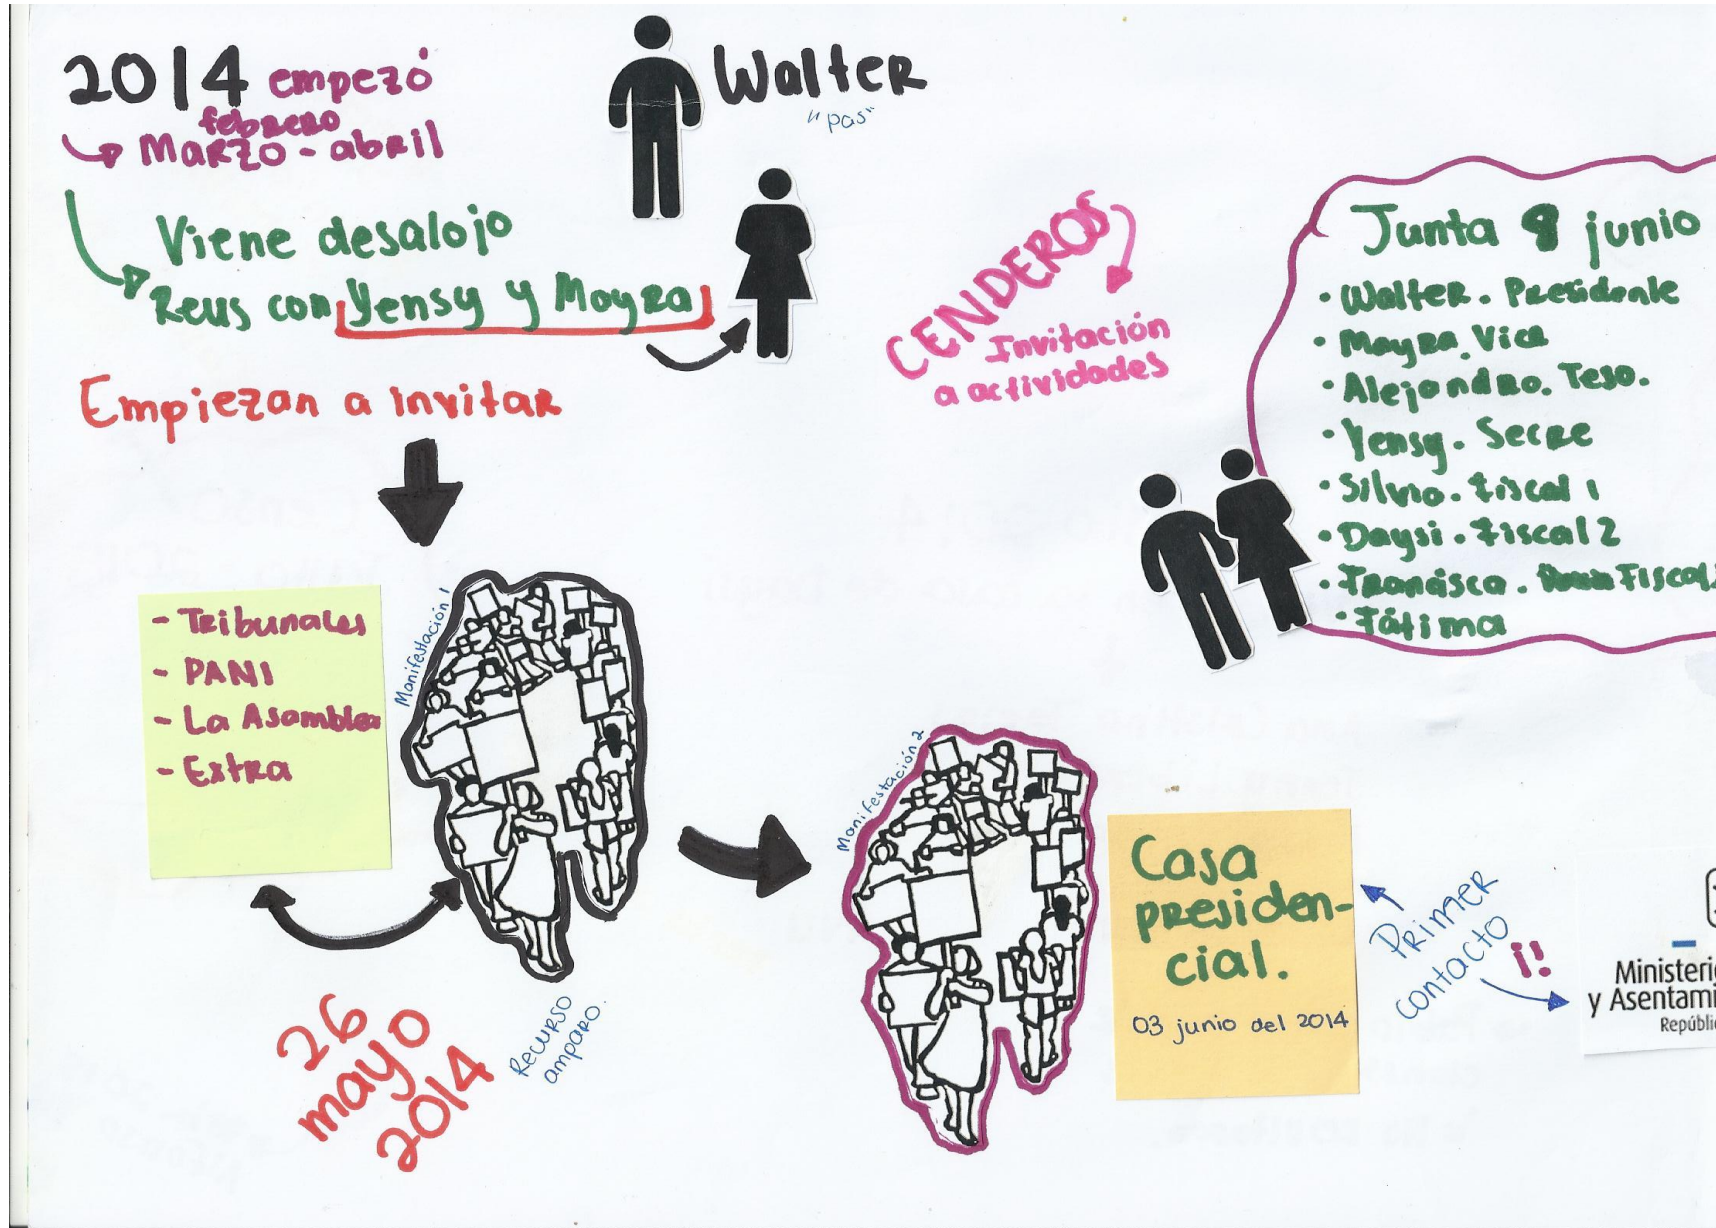 2014 empezó
febrero
Marzo - abril
Walter
"pas"
Viene desalojo
Reus con Yensy y Mayra
Empiezan a invitar
CENDEROS
Invitación
a actividades
Junta 8 junio
• Walter. Presidente
• Mayra. Vice
• Alejandro. Teso.
• Yensy. Secre
• Silvio. Fiscal 1
• Daysi. Fiscal 2
• Francisca. Fiscal
• Fátima
- Tribunales
- PANI
- La Asamblea
- Extra
Manifestación 1
26
mayo
2014
Recurso
amparo.
Manifestación 2
Casa
presiden-
cial.
03 junio del 2014
Primer
contacto
¡!
Ministeri
y Asentami
Repúbli